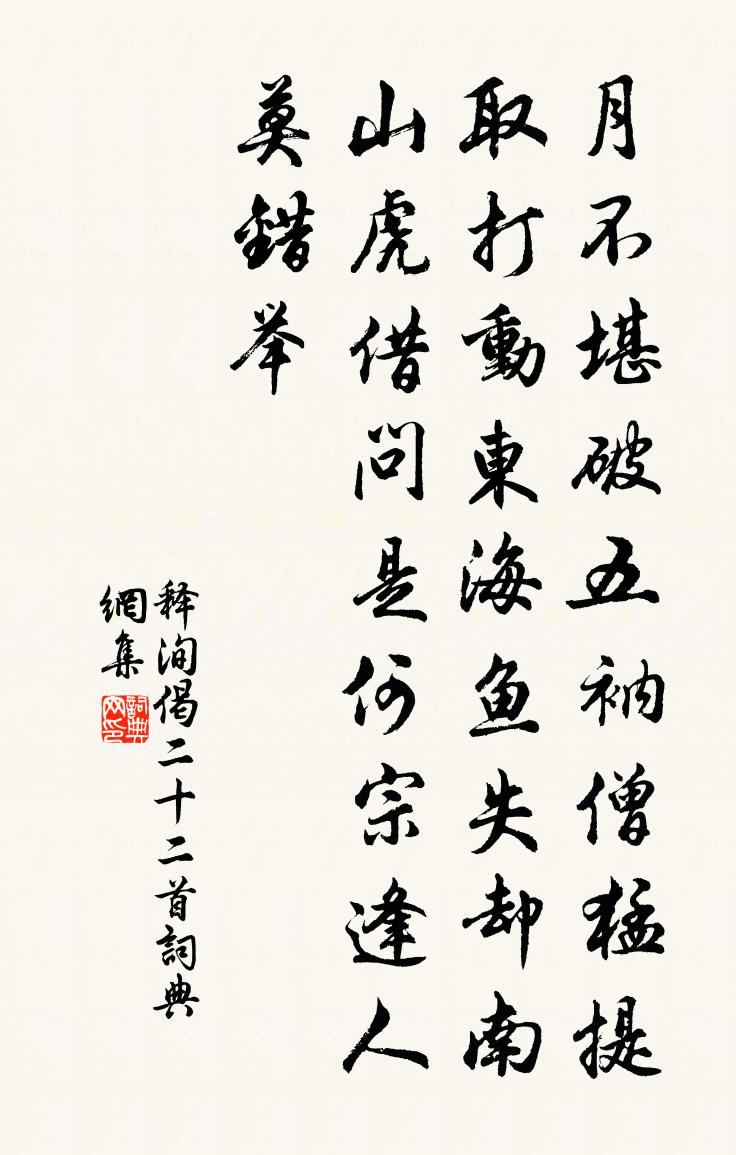 月不堪破五衲僧猛提
取打動東海鱼失却南
山虎借問是何宗逢人
莫錯举
释洵偈二十二首詞典
網集
詞典
网印